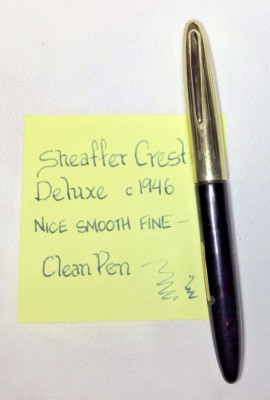 Sheaffer Crest
Deluxe c1946
NICE SMOOTH FINE –
Clean Pen